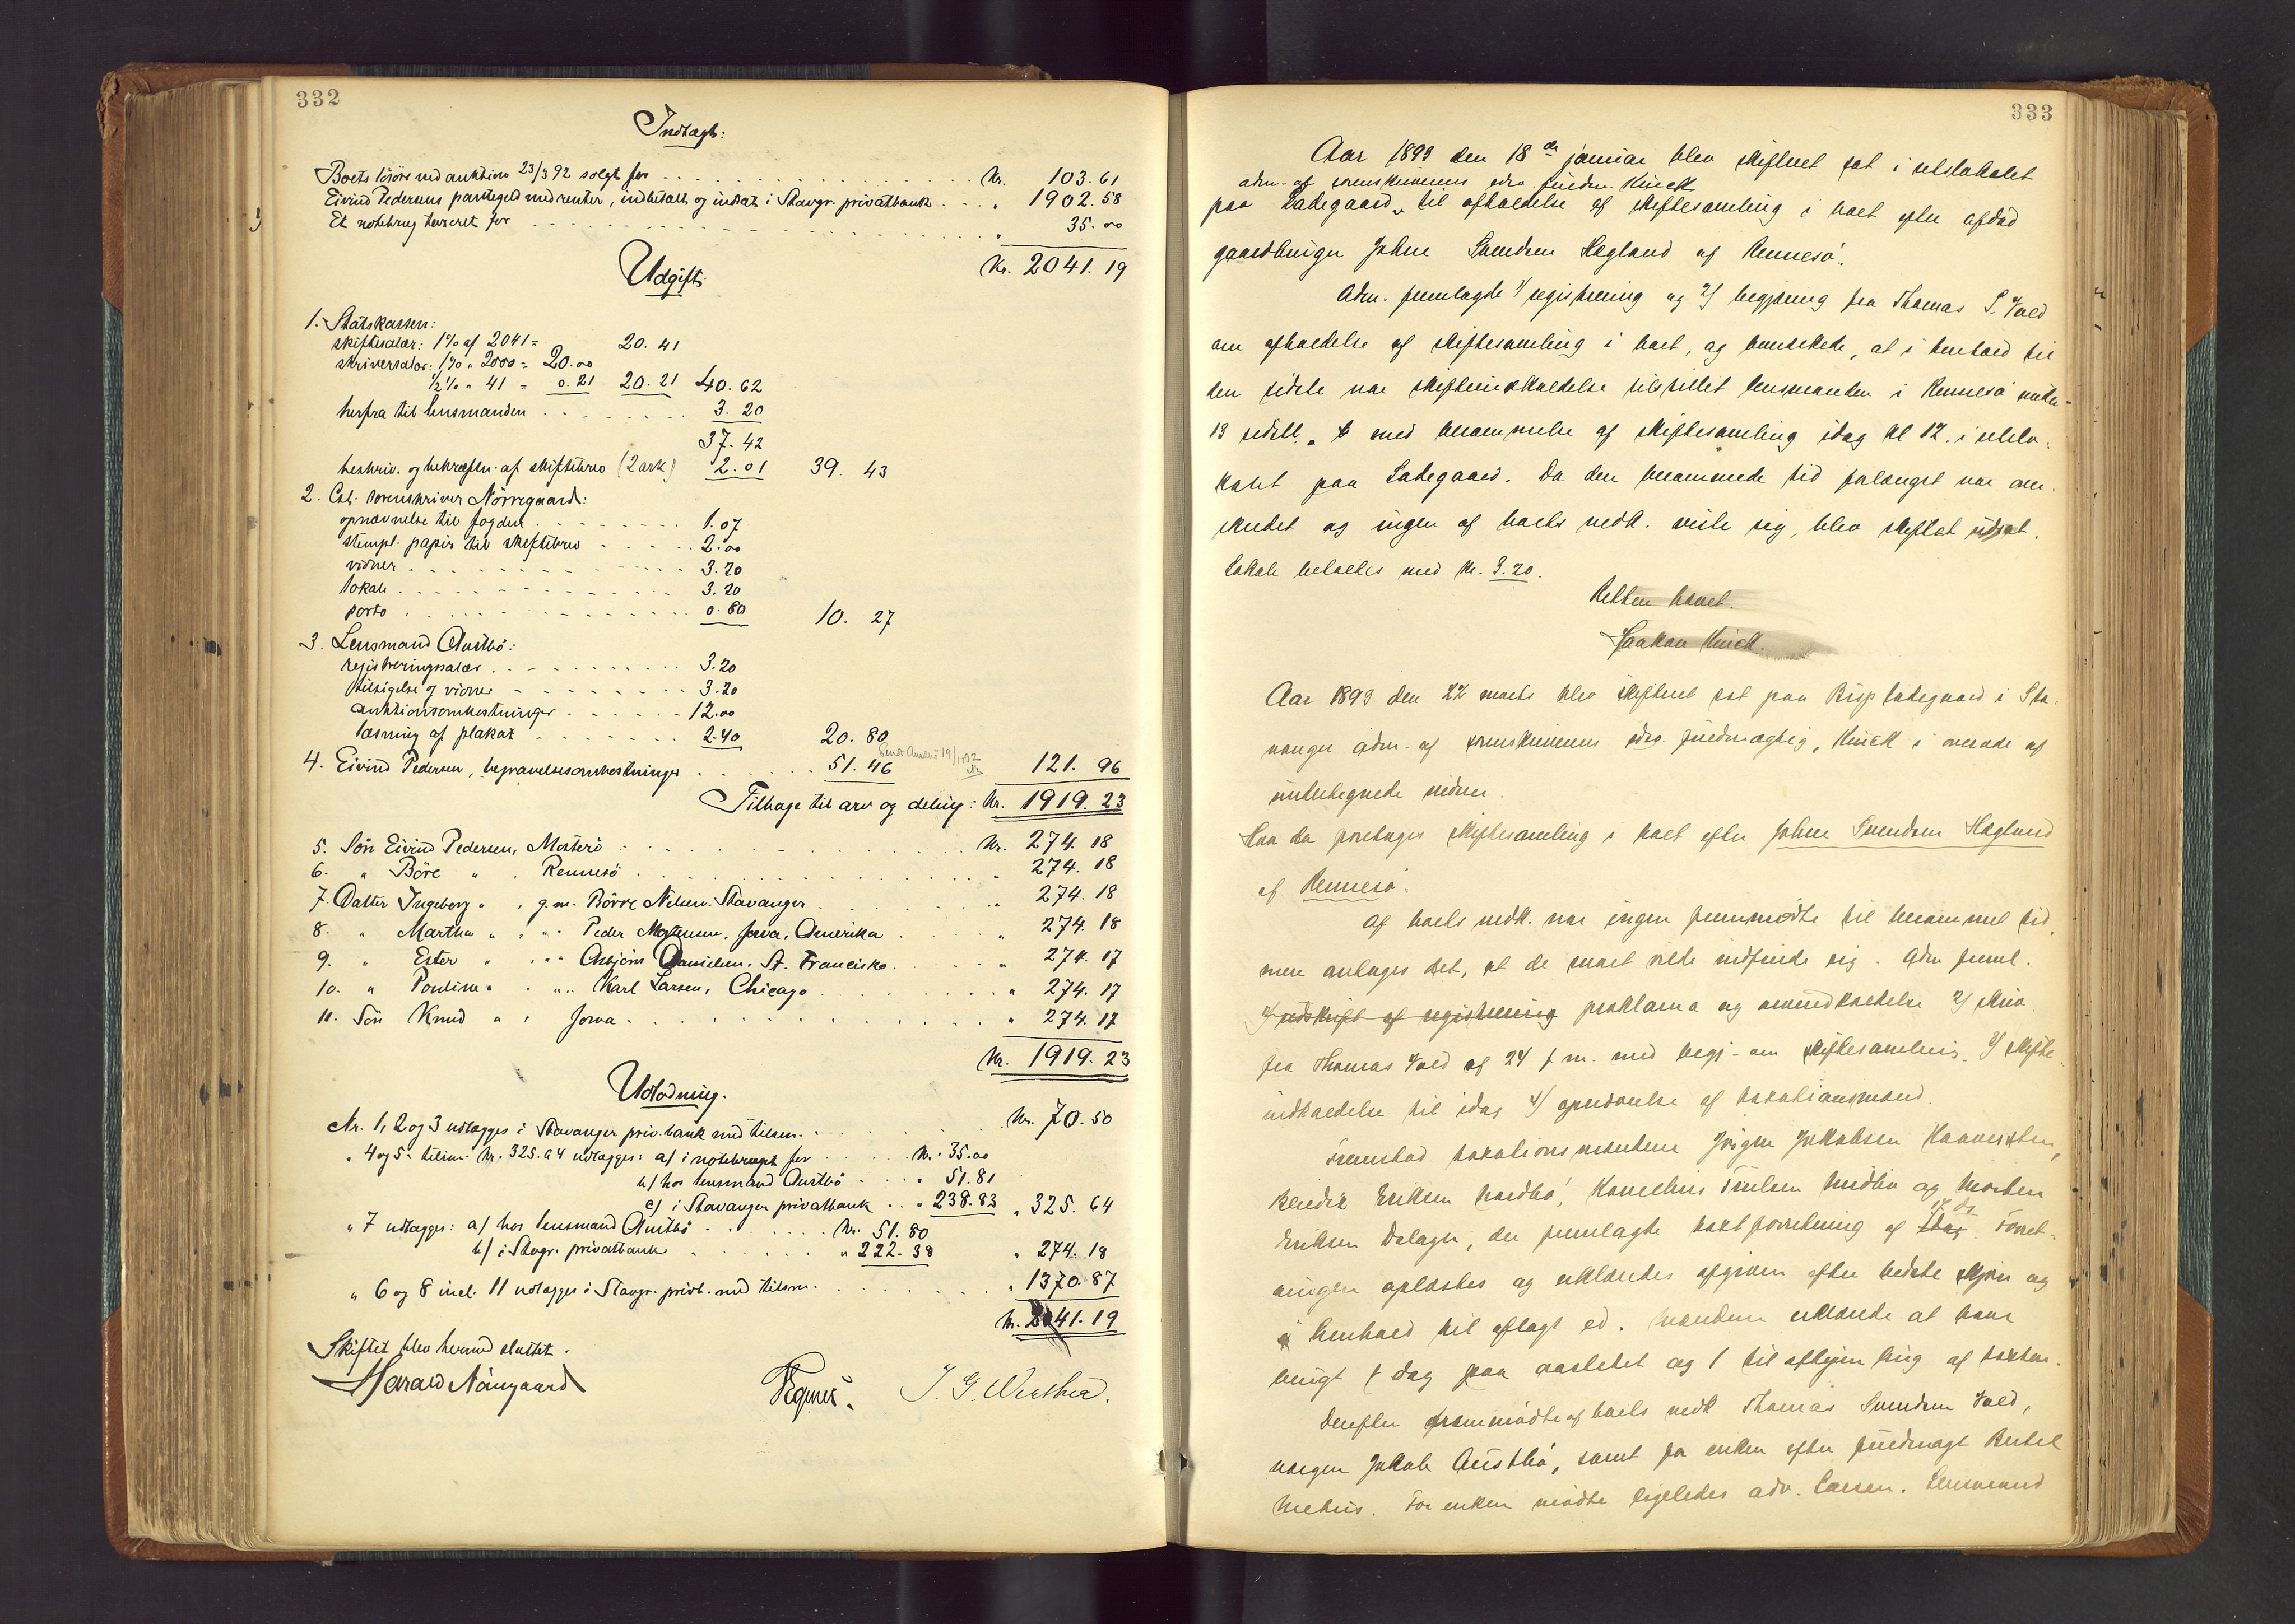 332
Indtægt:
Boets løsøre ved auktion 23/3 92 solgt for Kr. 103.61
Eivind Pedersens pantegjeld med renter, indbetalt og indsat i Stavgr. privatbank " 1902.58
Et notebrug taxeret for " 35.00
Kr. 2041.19
Udgift:
1. Statskassen:
skiftesalær: 1% af 2041 = 20.41
skriversalær: 1% " 2000 = 20.00
1/2% " 41 = 0.21 20.21 40.62
herfra til lensmanden 3.20
37.42
beskriv. og bekræftn. af skiftebrev (2 ark) 2.01 39.43
2. Cst. sorenskriver Nørregaard:
opnævnelse til fogden 1.07
stempl. papir til skiftebrev 2.00
vidner 3.20
lokale 3.20
porto 0.80 10.27
3. Lensmand Austbø:
registreringssalær 3.20
tilsigelse og vidner 3.20
auktionsomkostninger 12.00
læsning af plakat 2.40 20.80
4. Eivind Pedersen, begravelsesomkostninger 51.46 121.96
Tilbage til arv og deling: Kr. 1919.23
5. Søn Eivind Pedersen, Mosterø Kr. 274.18
6. " Børe " , Rennesø " 274.18
7. Datter Ingeborg " , g.m. Børre Nelsen, Stavanger " 274.18
8. " Martha " , " " Peder Mortensen, Jova, Amerika " 274.18
9. " Ester " , " " Asbjørn Danielsen, St. Francisko " 274.17
10. " Pouline " , " " Karl Larsen, Chicago " 274.17
11. Søn Knud " , Jowa " 274.17
Kr. 1919.23
Udlodning.
Nr. 1, 2 og 3 udlægges i Stavanger priv. bank med tilsm. Kr. 70.50
" 4 og 5 tilsm. Kr. 325.64 udlægges: a/ i notebruget for Kr. 35.00
b/ hos lensmand Austbø " 51.81
c/ i Stavanger privatbank " 238.83 " 325.64
" 7 udlægges: a/ hos lensmand Austbø Kr. 51.80
b/ i Stavgr. privatbank " 222.38 " 274.18
" 6 og 8 incl. 11 udlægges i Stavgr. privb. med tilsm. " 1370.87
Kr. 2041.19
Skiftet blev hermed sluttet.
Harald Nørregaard J. G. Wiethe.
333
Aar 1893 den 18de januar blev skifteret sat i retslokalet
adm. af sorenskriverens edsv. fuldm. Kinck
paa Ladegaard til afholdelse af skiftesamling i boet efter afdød
gaardbruger Johne Svendsen Hegland af Rennesø.
Adm. fremlagde 1/ registrering og 2/ begjæring fra Thomas S. Vold
om afholdelse af skiftesamling i boet, og bemærkede, at i henhold til
den sidste var skifteindkaldelse tilstillet lensmanden i Rennesø under
13 med berammelse af skiftesamling idag kl 12 i retslo-
kalet paa Ladegaard. Da den berammede tid forlængst var over-
skredet og ingen af boets vedk. viste sig, blev skiftet udsat.
Lokale betaltes med Kr. 3.20.
Retten hævet.
Haakon Kinck.
Aar 1893 den 22 marts blev skifteret sat paa Bispladegaard i Sta-
vanger adm. af sorenskriverens edsv. fuldmægtig, Kinck i overvær af
undertegnede vidner.
Hvor da foretoges skiftesamling i boet efter Johne Svendsen Hegland
af Rennesø.
Af boets vedk. var ingen fremmødte til berammet tid,
men antoges det, at de snart vilde indfinde sig. Adm. freml.
1/ udskrift af registrering proklama og arveindkaldelse 2/ skriv
fra Thomas Vold af 24 f. m. med begj. om skiftesamling. 3/ skifte-
indkaldelse til idag 4/ opnævnelse af taxationsmænd.
Fremstod taxationsmændene Jørgen Jakobsen
Bendik Eriksen Nordbø, Kornelius Midbø og Morten
17 ds
Eriksen Dalager, der fremlagde taxtforretning af idag. Forret-
ningen oplæstes og erklæredes afgiven efter bedste skjøn og
i henhold til aflagt ed. Mændene erklærede at have
brugt 1 dag paa aastedet og 1 til afhjemling af taxten.
Derefter fremmødte af boets vedk Thomas Svendsen Vold,
værgen Jakob Austbø, samt for enken efter fuldmagt Bertel
Mehus. For enken mødte ligeledes adv. Larsen. Lensmand